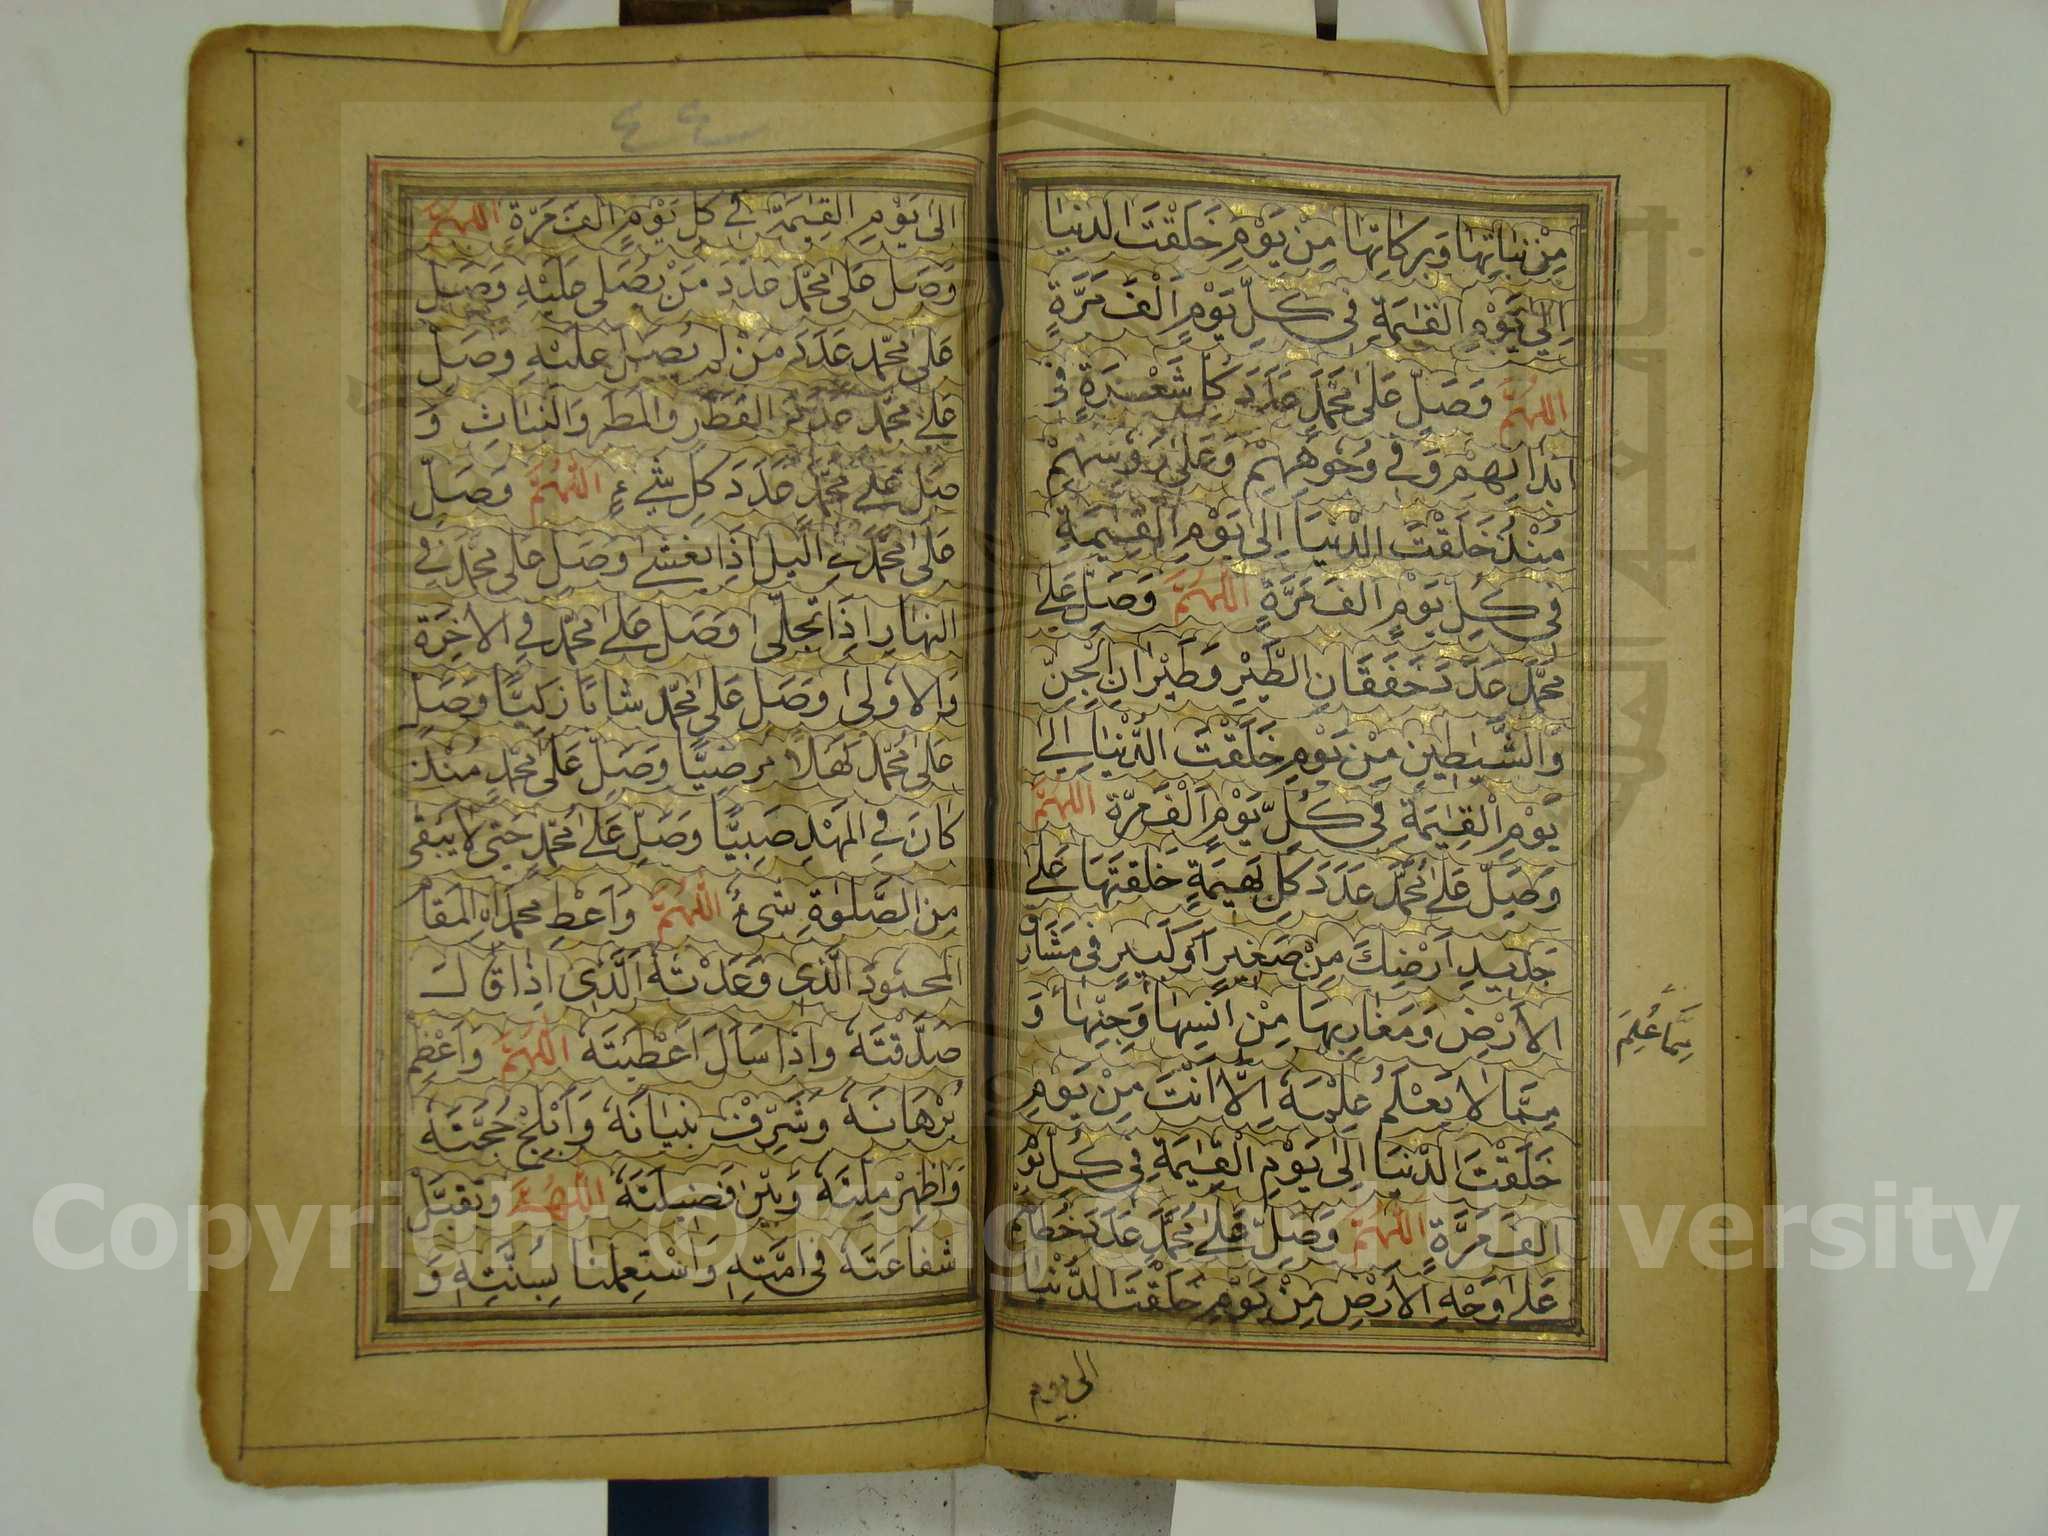 مِنْ نَبَاتِهَا وَبَرَكَاتِهَا مِنْ يَوْمِ خَلَقْتَ الدُّنْيَا
اِلٰى يَوْمِ الْقِيٰمَةِ فِى كُلِّ يَوْمٍ اَلْفَ مَرَّةٍ
اَللّٰهُمَّ وَصَلِّ عَلٰى مُحَمَّدٍ عَدَدَ كُلِّ شَعْرَةٍ فِى
اَبْدَانِهِمْ وَفِى وُجُوهِهِمْ وَعَلٰى رُؤُسِهِمْ
مُنْذُ خَلَقْتَ الدُّنْيَا اِلٰى يَوْمِ الْقِيٰمَةِ
فِى كُلِّ يَوْمٍ اَلفَ مَرَّةٍ اَللّٰهُمَّ وَصَلِّ عَلٰى
مُحَمَّدٍ عَدَدَ خَفَقَانِ الطَّيْرِ وَطَيْرَانِ الْجِنِّ
وَالشَّيٰطِينِ مِنْ يَوْمِ خَلَقْتَ الدُّنْيَا اِلٰى
يَوْمِ الْقِيٰمَةِ فِى كُلِّ يَوْمٍ اَلْفَ مَرَّةٍ اَللّٰهُمَّ
وَصَلِّ عَلٰى مُحَمَّدٍ عَدَدَ كُلِّ بَهِيمَةٍ خَلَقْتَهَا عَلٰى
جَدِيدِ اَرْضِكَ مِنْ صَغِيرٍ اَوْ كَبِيرٍ فِى مَشَارِقِ
الْاَرْضِ وَمَغَارِبِهَا مِنْ اِنْسِهَا وَجِنِّهَا وَ
مِمَّا لَا يَعْلَمُ عِلْمَهُ اِلَّا اَنْتَ مِنْ يَوْمِ
مِمَّا عُلِمَ
خَلَقْتَ الدُّنْيَا اِلٰى يَوْمِ الْقِيٰمَةِ فِى كُلِّ يَوْمٍ
اَلفَ مَرَّةٍ اَللّٰهُمَّ وَصَلِّ عَلٰى مُحَمَّدٍ عَدَدَ خُطَاهُمْ
عَلٰى وَجْهِ الْاَرْضِ مِنْ يَوْمِ خَلَقْتَ الدُّنْيَا
الى يوم
٤٤
اِلٰى يَوْمِ الْقِيٰمَةِ فِى كُلِّ يَوْمٍ اَلفَ مَرَّةٍ اَللّٰهُمَّ
وَصَلِّ عَلٰى مُحَمَّدٍ عَدَدَ مَنْ يُصَلِّى عَلَيْهِ وَصَلِّ
عَلٰى مُحَمَّدٍ عَدَدَ مَنْ لَمْ يُصَلِّ عَلَيْهِ وَصَلِّ
عَلٰى مُحَمَّدٍ عَدَدَ الْقَطْرِ وَالْمَطَرِ وَالنَّبَاتِ وَ
صَلِّ عَلٰى مُحَمَّدٍ عَدَدَ كُلِّ شَىْءٍ اَللّٰهُمَّ وَصَلِّ
عَلٰى مُحَمَّدٍ فِى الَّيْلِ اِذَا يَغْشٰى وَصَلِّ عَلٰى مُحَمَّدٍ فِى
النَّهَارِ اِذَا تَجَلّٰى وَصَلِّ عَلٰى مُحَمَّدٍ فِى الْاٰخِرَةِ
وَالْاُولٰى وَصَلِّ عَلٰى مُحَمَّدٍ شَابًّا زَكِيًّا وَصَلِّ
عَلٰى مُحَمَّدٍ كَهْلًا مَرْضِيًّا وَصَلِّ عَلٰى مُحَمَّدٍ مُنْذُ
كَانَ فِى الْمَهْدِ صَبِيًّا وَصَلِّ عَلٰى مُحَمَّدٍ حَتّٰى لَا يَبْقٰى
مِنَ الصَّلٰوةِ شَىْءٌ اَللّٰهُمَّ وَاَعْطِ مُحَمَّدًا اۨلْمَقَامَ
الْمَحْمُودَ الَّذِى وَعَدْتَهُ الَّذِى اِذَا قَالَ
صَدَّقْتَهُ وَاِذَا سَاَلَ اَعْطَيْتَهُ اَللّٰهُمَّ وَاَعْظِمْ
بُرْهَانَهُ وَشَرِّفْ بُنْيَانَهُ وَاَبْلِجْ حُجَّتَهُ
وَاَظْهِرْ مِلَّتَهُ وَبَيِّنْ فَضِيلَتَهُ اَللّٰهُمَّ وَتَقَبَّلْ
شَفَاعَتَهُ فِى اُمَّتِهِ وَاسْتَعْمِلْنَا بِسُنَّتِهِ وَ
Copyright © King Saud University